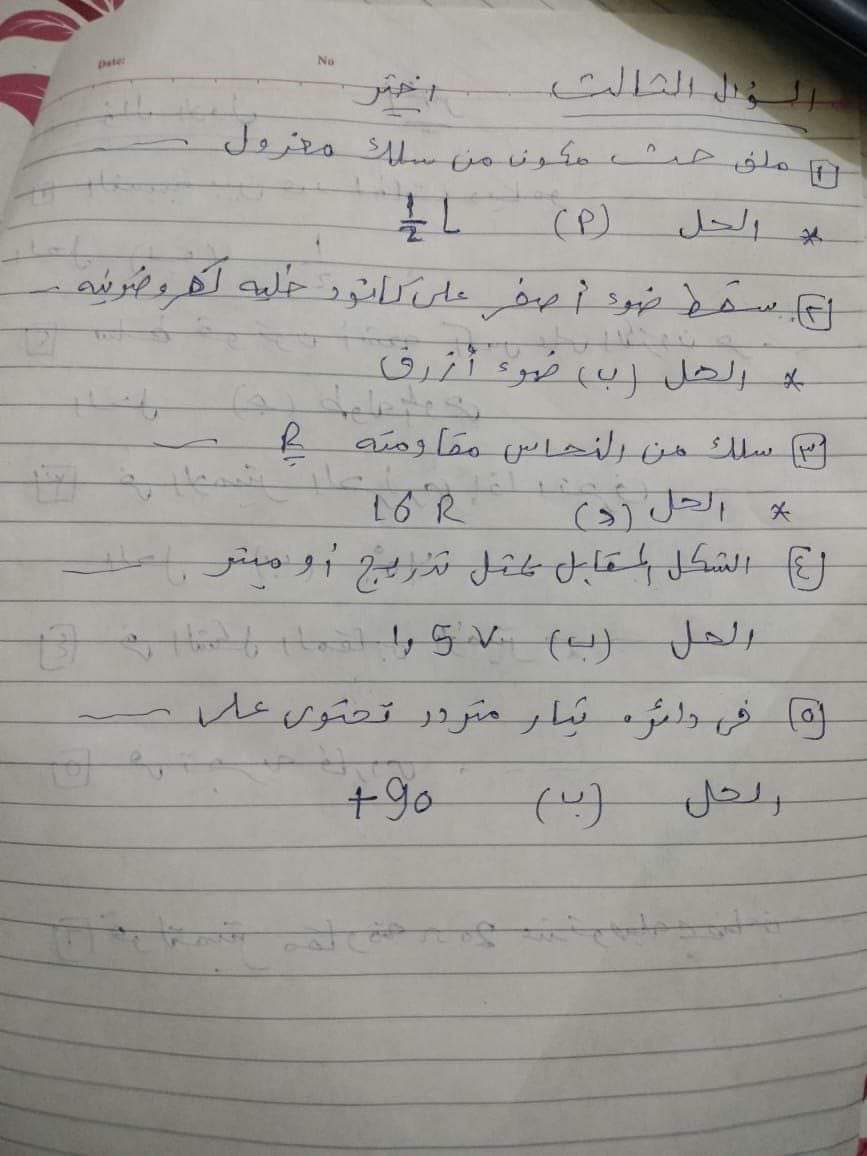 Date: No
السؤال الثالث اختر
١ ملف حث مكون من سلك معزول
* الحل (P) ½ L
٢ سقط ضوء أصفر على كاثود خليه كهروضوئيه
* الحل (ب) ضوء أزرق
٣ سلك من النحاس مقاومته R
* الحل (د) 16 R
٤ الشكل المقابل يمثل تدريج أوميتر
الحل (ب) 5 V و1
٥ فى دائره تيار متردد تحتوى على
الحل (ب) +90